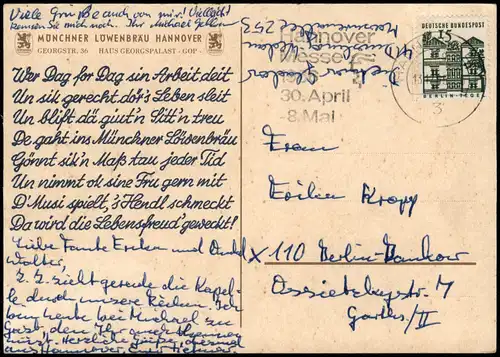 Viele Grüße auch von mir! Vielleicht
kennen Sie mich noch. Ihr Michael
MÜNCHNER LÖWENBRÄU HANNOVER
GEORGSTR. 36 HAUS GEORGSPALAST - GOP -
Wer Dag for Dag sin Arbeit deit
Un sik gerecht dör's Leben sleit
Un blift dö giut'n Sitt'n treu
De gaht ins Münchner Löwenbräu
Gönnt sik'n Maß tau jeder Tid
Un nimmt ok sine Fru gern mit
D'Musi spielt, 's Hendl schmeckt
Da wird die Lebensfreud' geweckt!
Liebe Tante Erika und Onkel
Walter,
z. Z. zieht gerade die Kapel-
le durch unsere Reihen. Ich
bin heute bei Michael zu
Gast, den Ihr auch kennen
Herzliche Grüße
aus Hannover, Euer
253
Hannover
Messe
30. April
- 8. Mai
15
DEUTSCHE BUNDESPOST
15
BERLIN-TEGEL
3
Frau
Erika Kropp
x 110 Berlin-Pankow
Ossietzkystr. 7
Garths/II